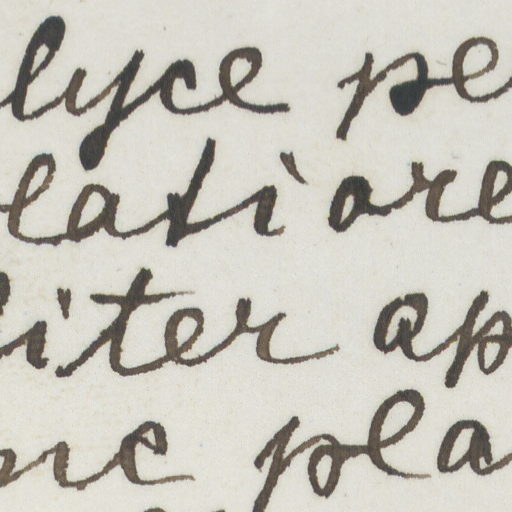 lyce pe
latiore
iter ap
nc pla